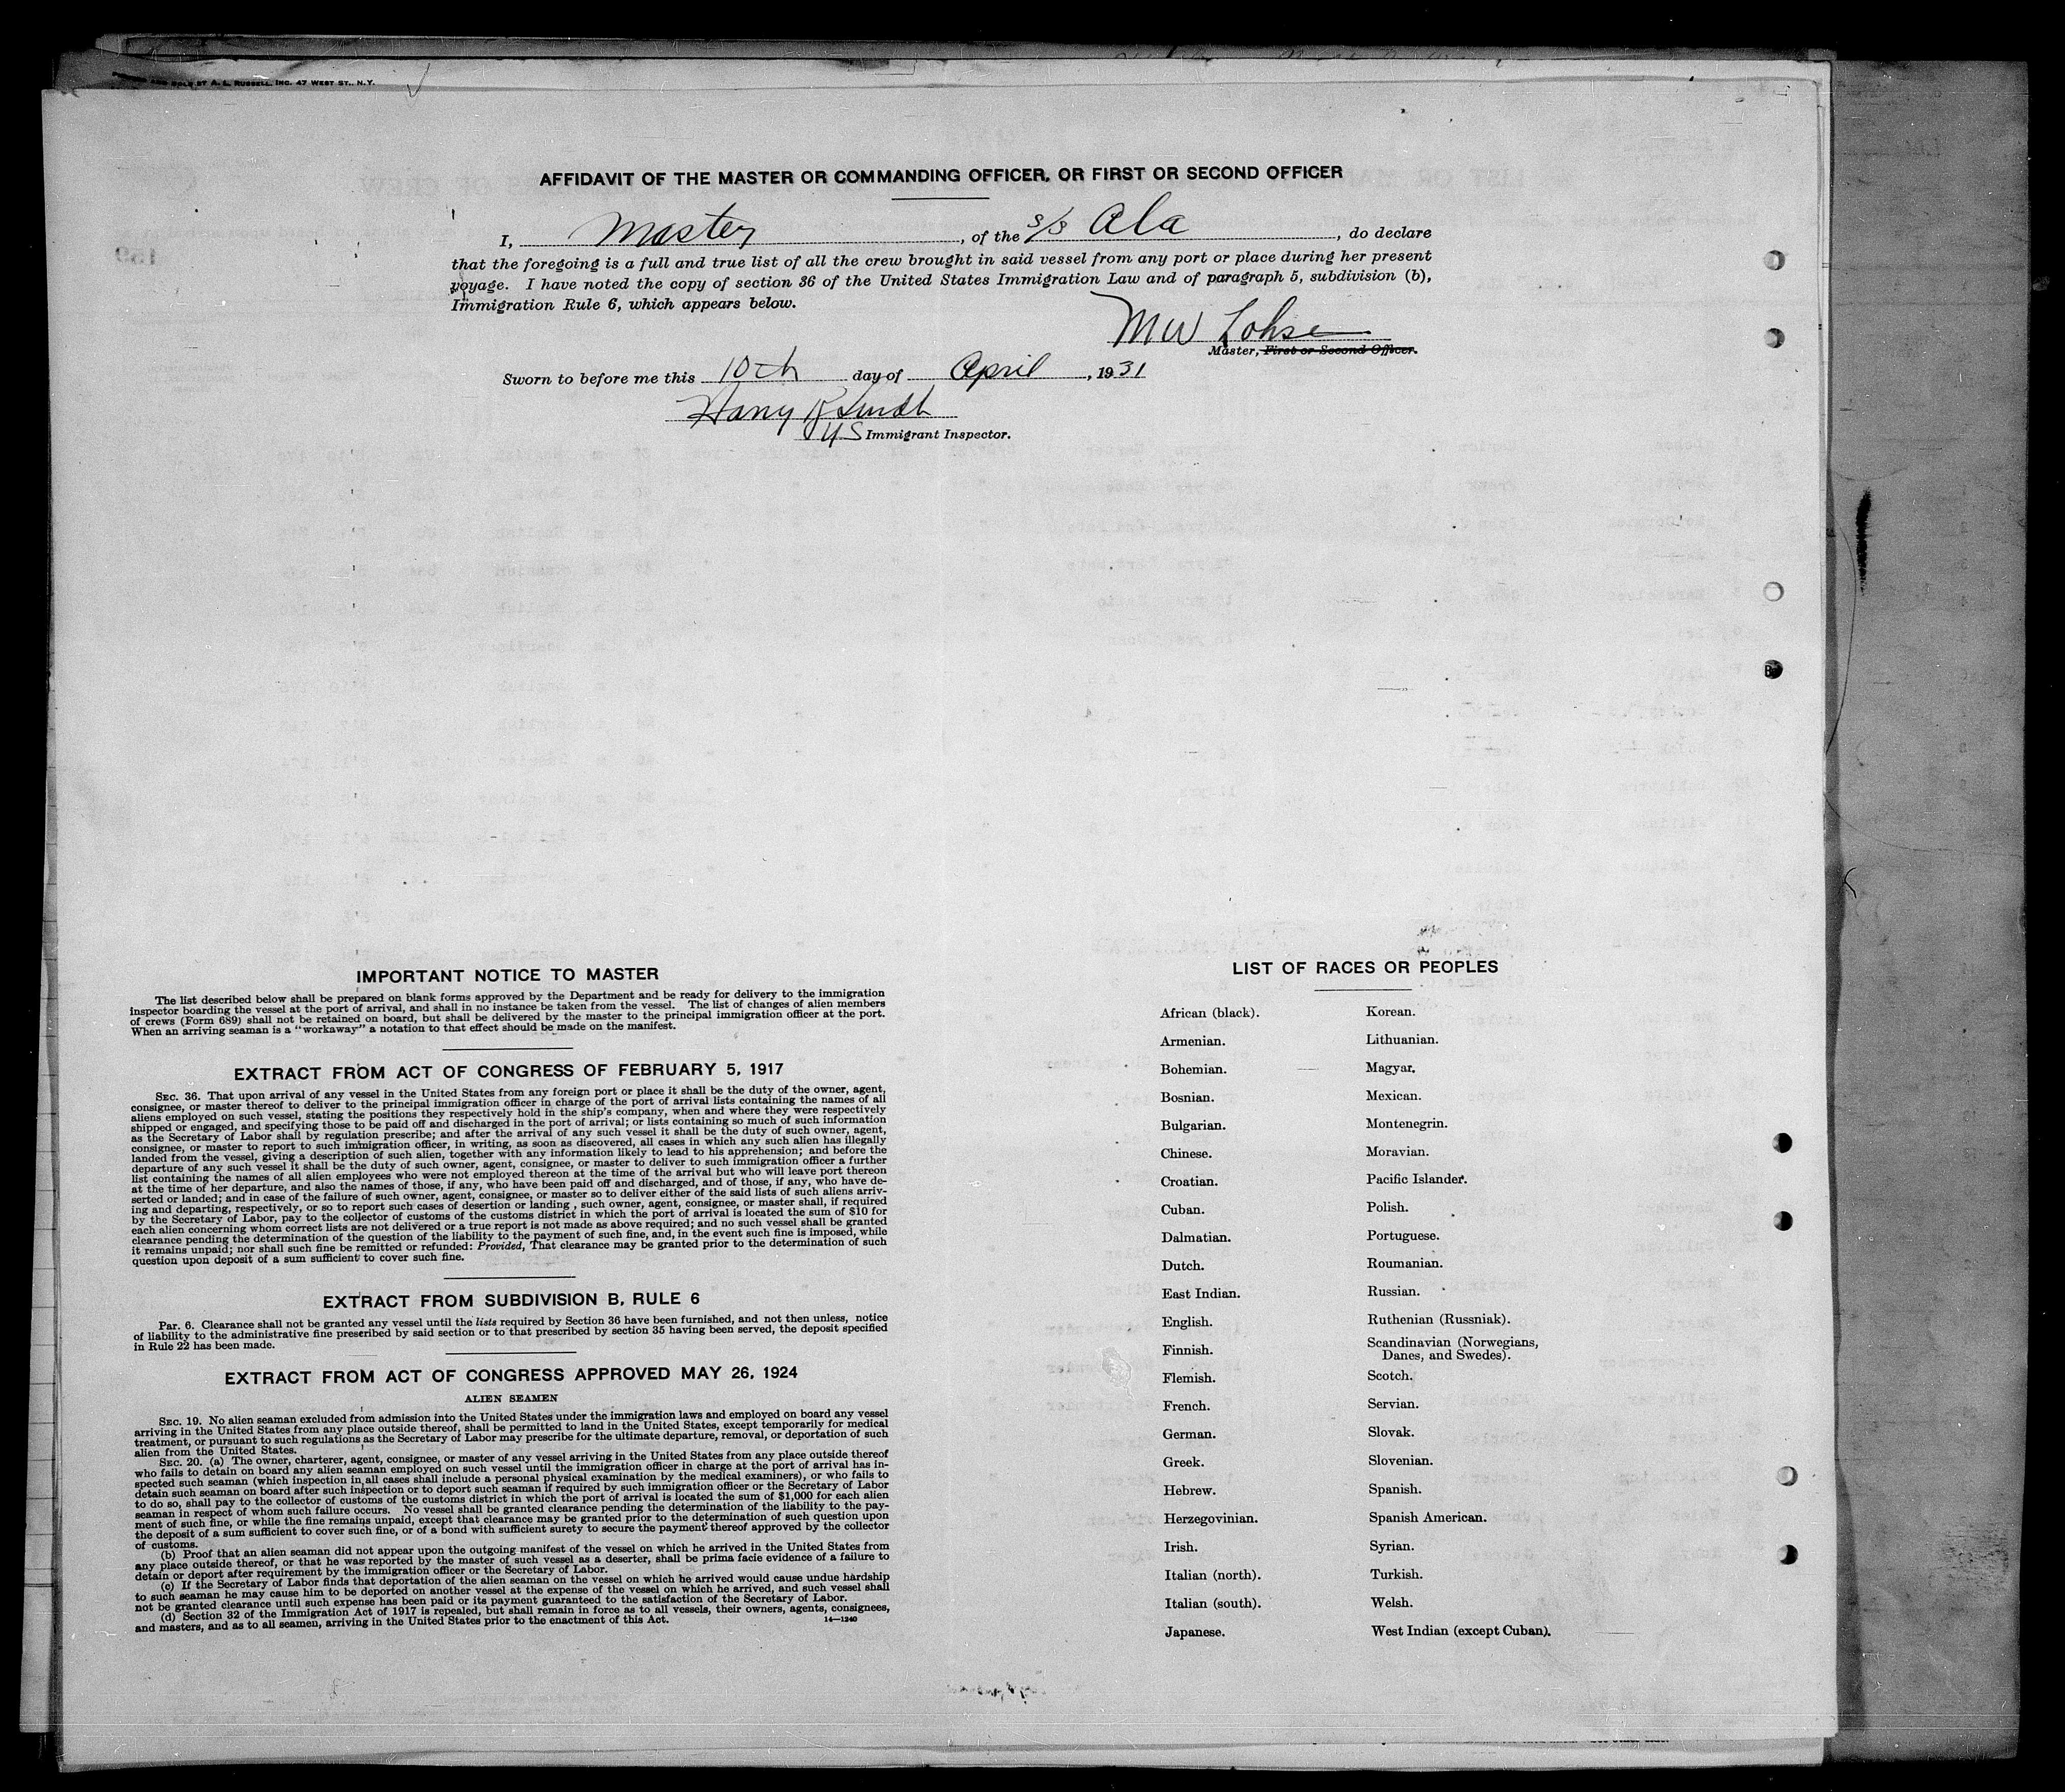 SOLD BY A. L. RUSSELL, INC. 47 WEST ST., N.Y.
AFFIDAVIT OF THE MASTER OR COMMANDING OFFICER, OR FIRST OR SECOND OFFICER
I, Master, of the S/S Ala, do declare
that the foregoing is a full and true list of all the crew brought in said vessel from any port or place during her present
voyage. I have noted the copy of section 36 of the United States Immigration Law and of paragraph 5, subdivision (b),
Immigration Rule 6, which appears below.
MW Lohse
Master, First or Second Officer.
Sworn to before me this 10th day of April, 1931
Harry R
US Immigrant Inspector.
IMPORTANT NOTICE TO MASTER
The list described below shall be prepared on blank forms approved by the Department and be ready for delivery to the immigration
inspector boarding the vessel at the port of arrival, and shall in no instance be taken from the vessel. The list of changes of alien members
of crews (Form 689) shall not be retained on board, but shall be delivered by the master to the principal immigration officer at the port.
When an arriving seaman is a "workaway" a notation to that effect should be made on the manifest.
EXTRACT FROM ACT OF CONGRESS OF FEBRUARY 5, 1917
SEC. 36. That upon arrival of any vessel in the United States from any foreign port or place it shall be the duty of the owner, agent,
consignee, or master thereof to deliver to the principal immigration officer in charge of the port of arrival lists containing the names of all
aliens employed on such vessel, stating the positions they respectively hold in the ship's company, when and where they were respectively
shipped or engaged, and specifying those to be paid off and discharged in the port of arrival; or lists containing so much of such information
as the Secretary of Labor shall by regulation prescribe; and after the arrival of any such vessel it shall be the duty of such owner, agent,
consignee, or master to report to such immigration officer, in writing, as soon as discovered, all cases in which any such alien has illegally
landed from the vessel, giving a description of such alien, together with any information likely to lead to his apprehension; and before the
departure of any such vessel it shall be the duty of such owner, agent, consignee, or master to deliver to such immigration officer a further
list containing the names of all alien employees who were not employed thereon at the time of the arrival but who will leave port thereon
at the time of her departure, and also the names of those, if any, who have been paid off and discharged, and of those, if any, who have de-
serted or landed; and in case of the failure of such owner, agent, consignee, or master so to deliver either of the said lists of such aliens arriv-
ing and departing, respectively, or so to report such cases of desertion or landing , such owner, agent, consignee, or master shall, if required
by the Secretary of Labor, pay to the collector of customs of the customs district in which the port of arrival is located the sum of $10 for
each alien concerning whom correct lists are not delivered or a true report is not made as above required; and no such vessel shall be granted
clearance pending the determination of the question of the liability to the payment of such fine, and, in the event such fine is imposed, while
it remains unpaid; nor shall such fine be remitted or refunded: Provided, That clearance may be granted prior to the determination of such
question upon deposit of a sum sufficient to cover such fine.
EXTRACT FROM SUBDIVISION B, RULE 6
Par. 6. Clearance shall not be granted any vessel until the lists required by Section 36 have been furnished, and not then unless, notice
of liability to the administrative fine prescribed by said section or to that prescribed by section 35 having been served, the deposit specified
in Rule 22 has been made.
EXTRACT FROM ACT OF CONGRESS APPROVED MAY 26, 1924
ALIEN SEAMEN
SEC. 19. No alien seaman excluded from admission into the United States under the immigration laws and employed on board any vessel
arriving in the United States from any place outside thereof, shall be permitted to land in the United States, except temporarily for medical
treatment, or pursuant to such regulations as the Secretary of Labor may prescribe for the ultimate departure, removal, or deportation of such
alien from the United States.
SEC. 20. (a) The owner, charterer, agent, consignee, or master of any vessel arriving in the United States from any place outside thereof
who fails to detain on board any alien seaman employed on such vessel until the immigration officer in charge at the port of arrival has in-
spected such seaman (which inspection in all cases shall include a personal physical examination by the medical examiners), or who fails to
detain such seaman on board after such inspection or to deport such seaman if required by such immigration officer or the Secretary of Labor
to do so, shall pay to the collector of customs of the customs district in which the port of arrival is located the sum of $1,000 for each alien
seaman in respect of whom such failure occurs. No vessel shall be granted clearance pending the determination of the liability to the pay-
ment of such fine, or while the fine remains unpaid, except that clearance may be granted prior to the determination of such question upon
the deposit of a sum sufficient to cover such fine, or of a bond with sufficient surety to secure the payment thereof approved by the collector
of customs.
(b) Proof that an alien seaman did not appear upon the outgoing manifest of the vessel on which he arrived in the United States from
any place outside thereof, or that he was reported by the master of such vessel as a deserter, shall be prima facie evidence of a failure to
detain or deport after requirement by the immigration officer or the Secretary of Labor.
(c) If the Secretary of Labor finds that deportation of the alien seaman on the vessel on which he arrived would cause undue hardship
to such seaman he may cause him to be deported on another vessel at the expense of the vessel on which he arrived, and such vessel shall
not be granted clearance until such expense has been paid or its payment guaranteed to the satisfaction of the Secretary of Labor.
(d) Section 32 of the Immigration Act of 1917 is repealed, but shall remain in force as to all vessels, their owners, agents, consignees,
and masters, and as to all seamen, arriving in the United States prior to the enactment of this Act.
14—1240
LIST OF RACES OR PEOPLES
African (black).
Armenian.
Bohemian.
Bosnian.
Bulgarian.
Chinese.
Croatian.
Cuban.
Dalmatian.
Dutch.
East Indian.
English.
Finnish.
Flemish.
French.
German.
Greek.
Hebrew.
Herzegovinian.
Irish.
Italian (north).
Italian (south).
Japanese.
Korean.
Lithuanian.
Magyar.
Mexican.
Montenegrin.
Moravian.
Pacific Islander.
Polish.
Portuguese.
Roumanian.
Russian.
Ruthenian (Russniak).
Scandinavian (Norwegians,
Danes, and Swedes).
Scotch.
Servian.
Slovak.
Slovenian.
Spanish.
Spanish American.
Syrian.
Turkish.
Welsh.
West Indian (except Cuban).